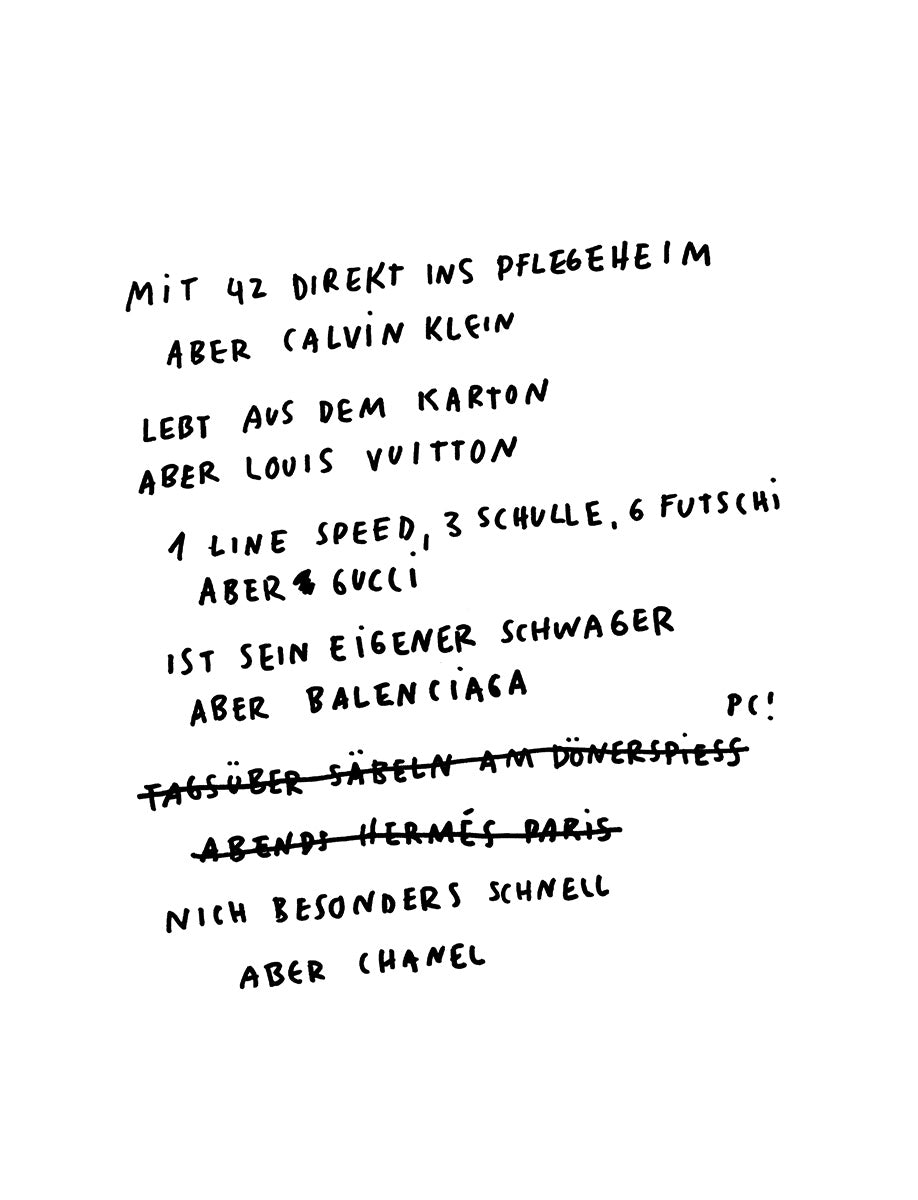 MIT 42 DIREKT INS PFLEGEHEIM
ABER CALVIN KLEIN
LEBT AUS DEM KARTON
ABER LOUIS VUITTON
1 LINE SPEED, 3 SCHULLE, 6 FUTSCHI
ABER GUCCI
IST SEIN EIGENER SCHWAGER
ABER BALENCIAGA
PC!
TAGSÜBER SÄBELN AM DÖNERSPIESS
ABENDS HERMÉS PARIS
NICH BESONDERS SCHNELL
ABER CHANEL